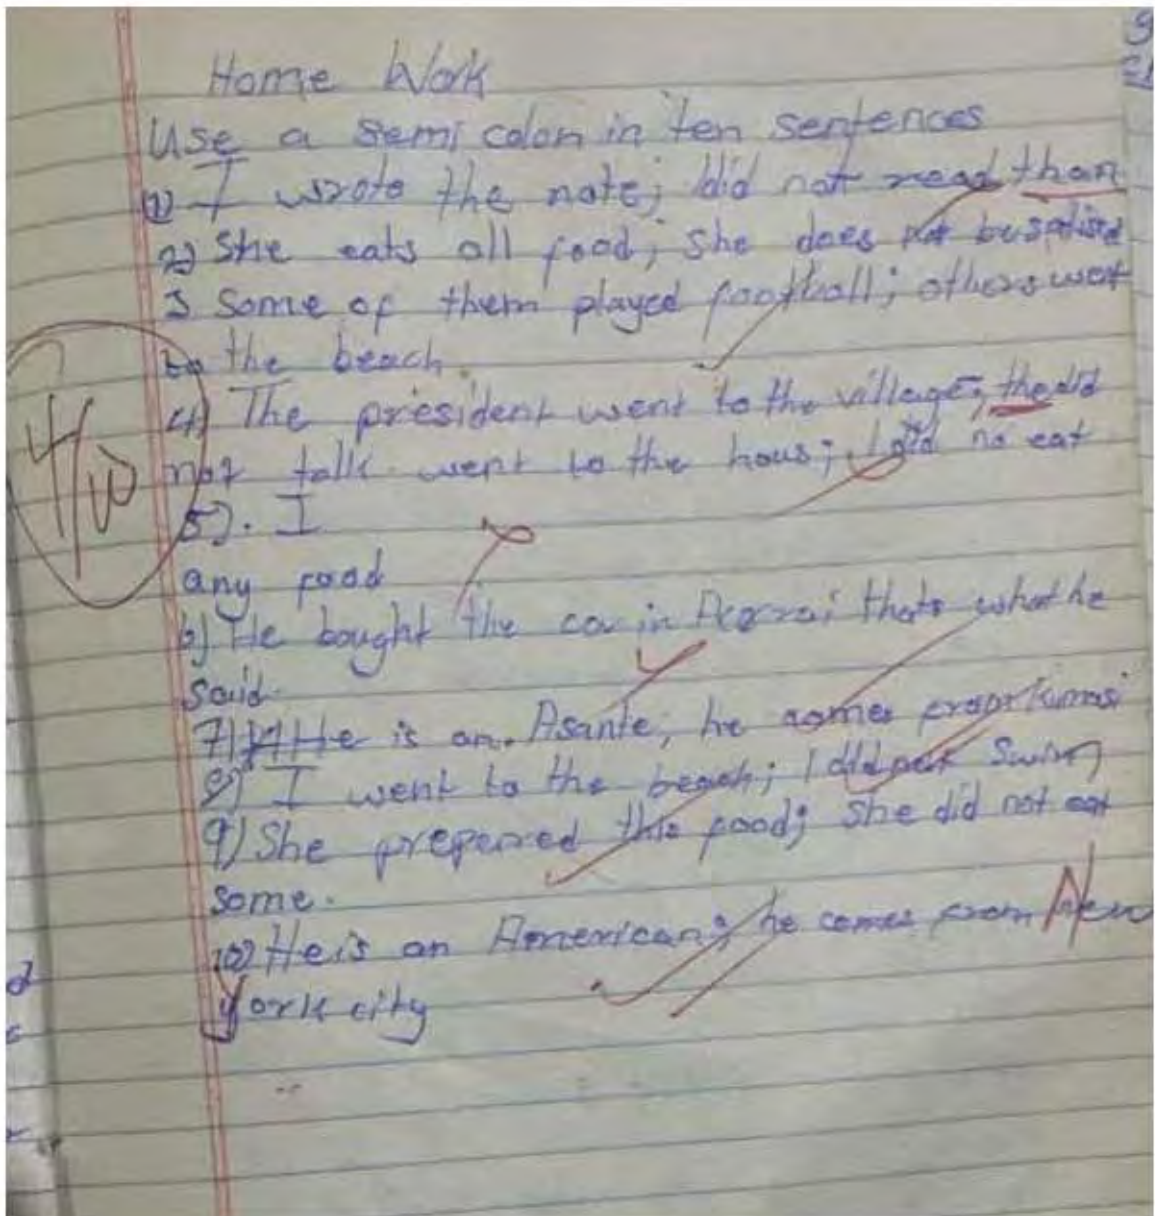 Home Work
Use a Semi colon in ten sentences
1) I wrote the note; I did not read than
2) She eats all food; she does not be
3 Some of them played football; others went
to the beach.
4) The president went to the village; the did
not talk went to the hous; I did no eat
5). I
any food
6) He bought the car in thats what he
said.
7) He is an Asante, he comes from Kumasi
8) I went to the beach; I did not Swim
9) She prepered this food; She did not eat
some.
10) He is an American; he comes from New
york city
4/10